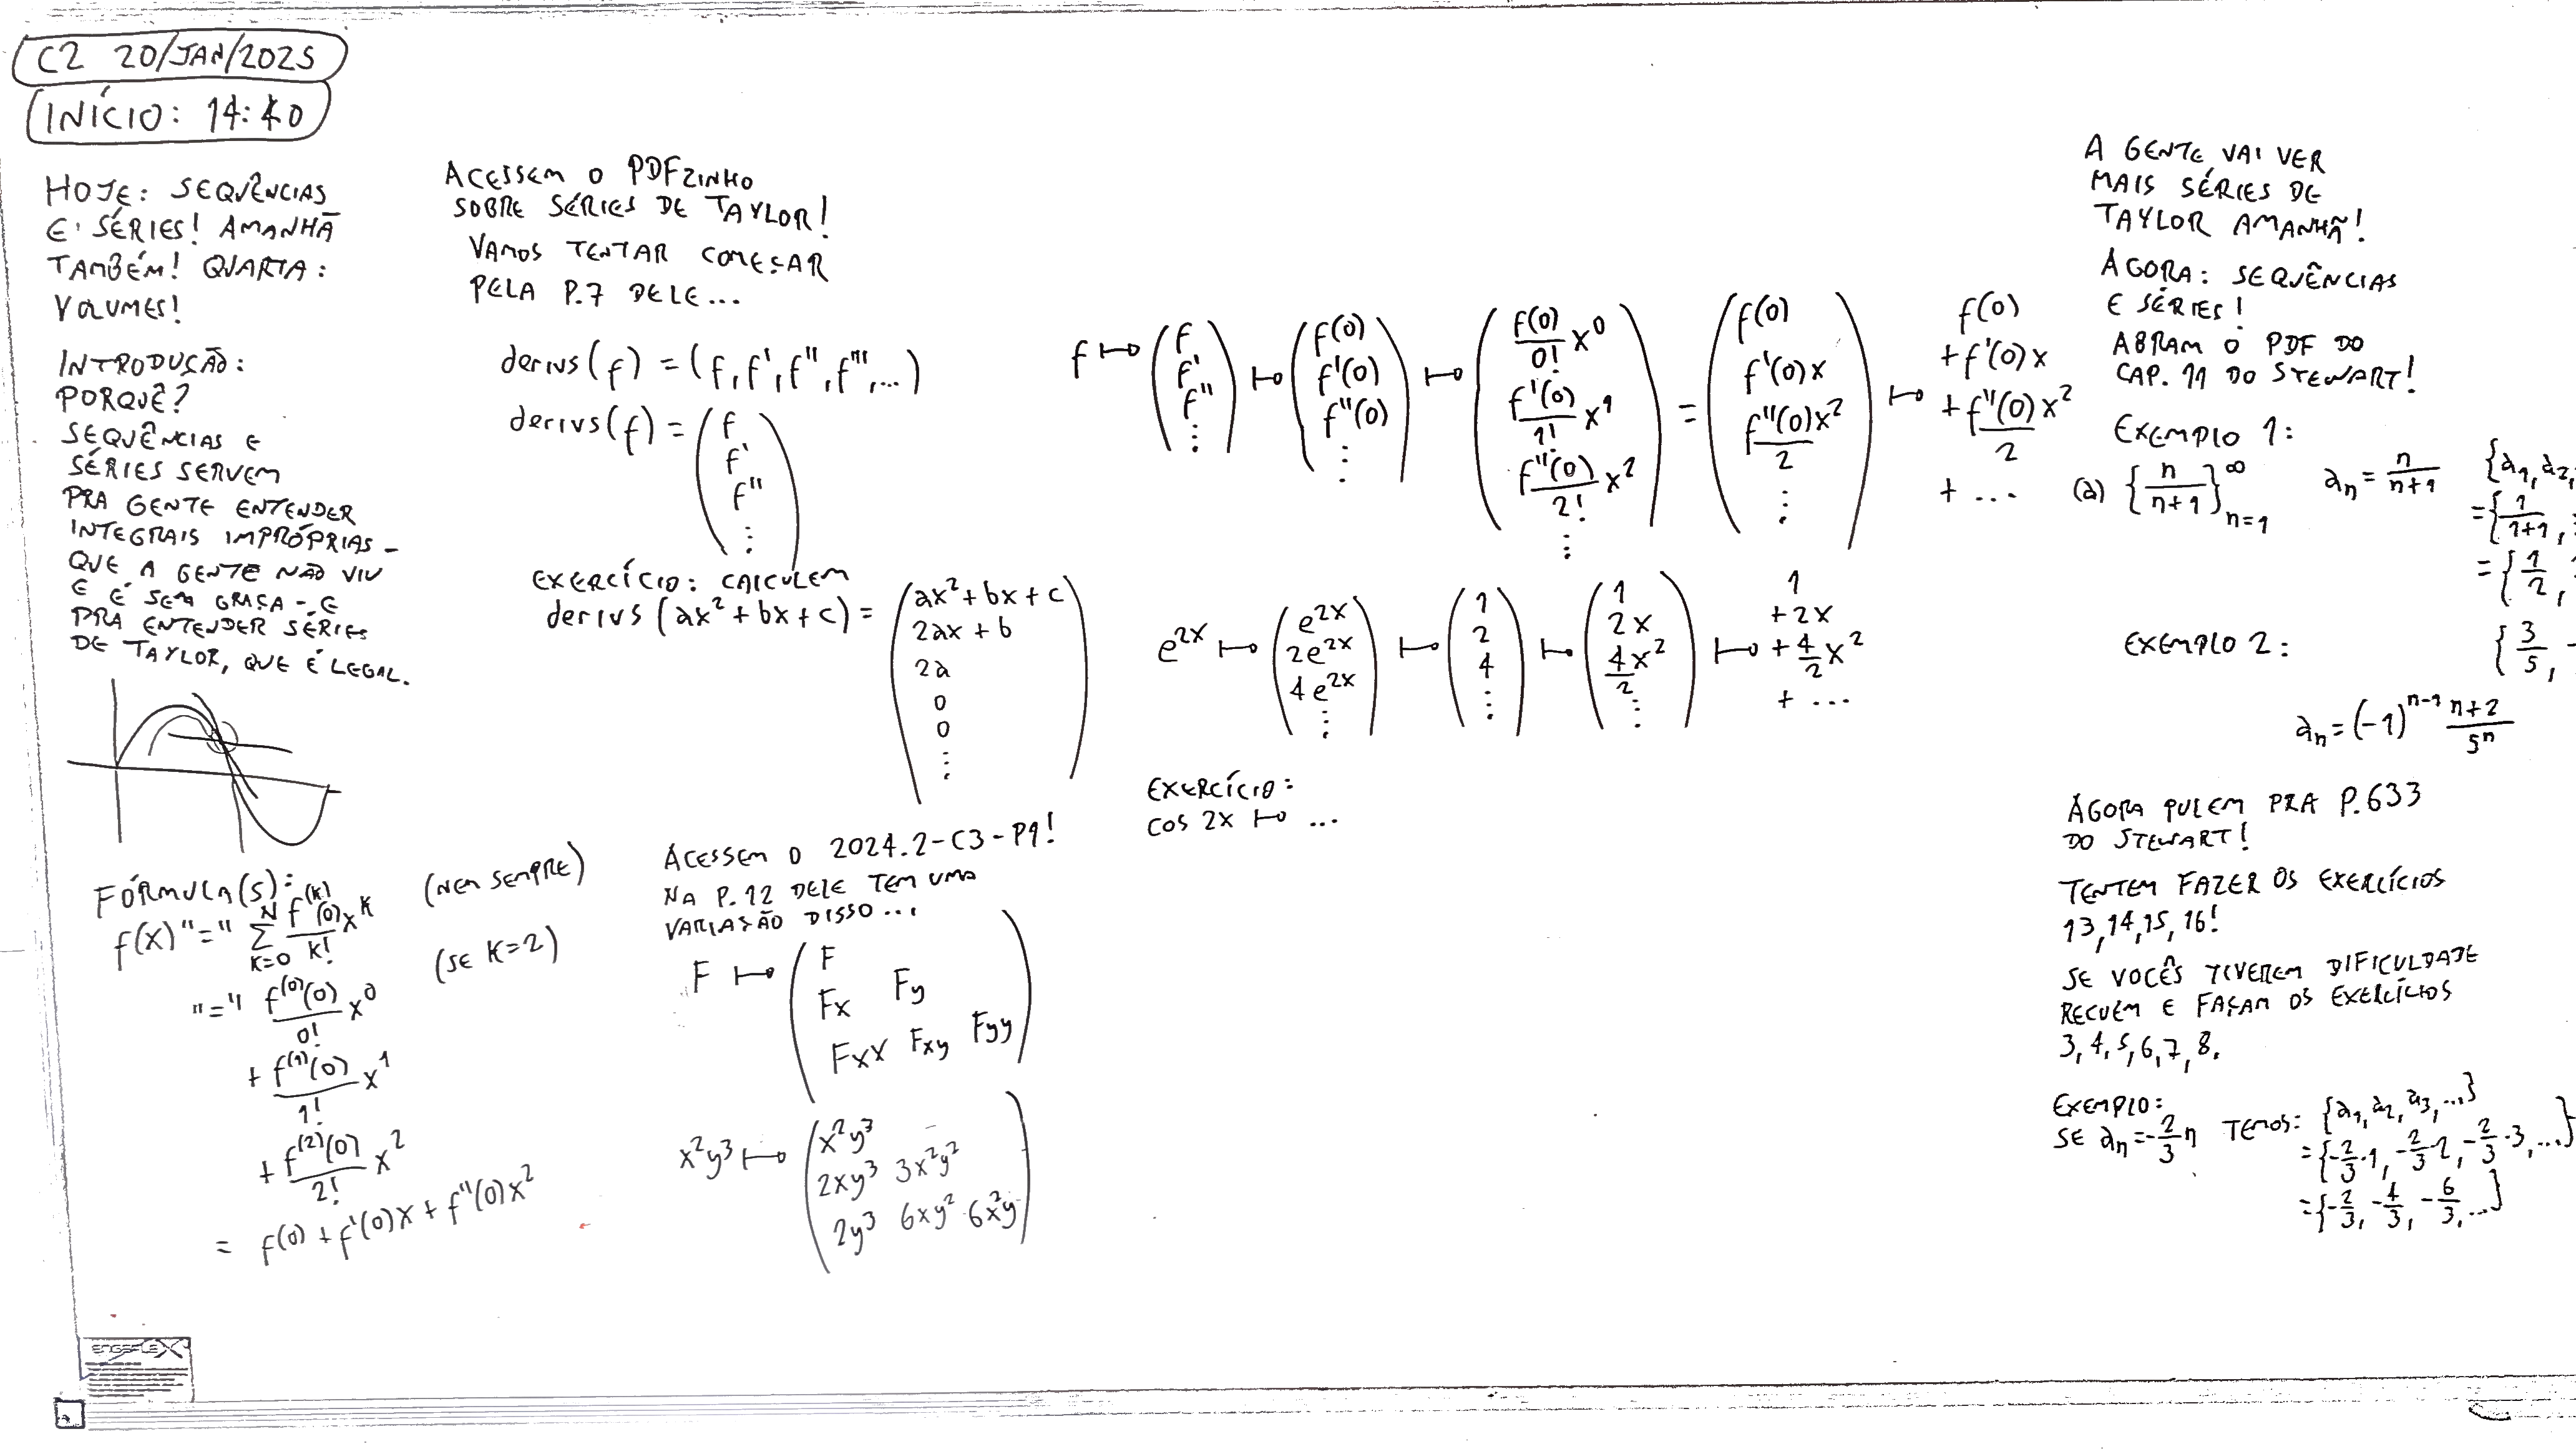 C2 20/JAN/2025
INÍCIO: 14:40
HOJE: SEQUÊNCIAS
E SÉRIES! AMANHÃ
TAMBÉM! QUARTA:
VOLUMES!
INTRODUÇÃO:
PORQUÊ?
SEQUÊNCIAS E
SÉRIES SERVEM
PRA GENTE ENTENDER
INTEGRAIS IMPRÓPRIAS –
QUE A GENTE NÃO VIU
E É SEM GRAÇA – E
PRA ENTENDER SÉRIES
DE TAYLOR, QUE É LEGAL.
FÓRMULA(S):
f(x) "=" \sum_{k=0}^{N} \frac{f^{(k)}(0)}{k!} x^k (NEM SEMPRE)
"=" \frac{f^{(0)}(0)}{0!} x^0 (SE K=2)
+ \frac{f^{(1)}(0)}{1!} x^1
+ \frac{f^{(2)}(0)}{2!} x^2
= f(0) + f'(0)x + f''(0)x^2
ACESSEM O PDFZINHO
SOBRE SÉRIES DE TAYLOR!
VAMOS TENTAR COMEÇAR
PELA P.7 DELE...
derivs(f) = (f, f', f'', f''', ...)
derivs(f) = \begin{pmatrix} f \\ f' \\ f'' \\ \vdots \end{pmatrix}
EXERCÍCIO: CALCULEM
derivs(ax^2+bx+c) = \begin{pmatrix} ax^2+bx+c \\ 2ax+b \\ 2a \\ 0 \\ 0 \\ \vdots \end{pmatrix}
ACESSEM O 2024.2-C3-P1!
NA P.12 DELE TEM UMA
VARIAÇÃO DISSO...
F ↦ \begin{pmatrix} F \\ Fx & Fy \\ Fxx & Fxy & Fyy \end{pmatrix}
x^2y^3 ↦ \begin{pmatrix} x^2y^3 \\ 2xy^3 & 3x^2y^2 \\ 2y^3 & 6xy^2 & 6x^2y \end{pmatrix}
f ↦ \begin{pmatrix} f \\ f' \\ f'' \\ \vdots \end{pmatrix} ↦ \begin{pmatrix} f(0) \\ f'(0) \\ f''(0) \\ \vdots \end{pmatrix} ↦ \begin{pmatrix} \frac{f(0)}{0!}x^0 \\ \frac{f'(0)}{1!}x^1 \\ \frac{f''(0)}{2!}x^2 \\ \vdots \end{pmatrix} = \begin{pmatrix} f(0) \\ f'(0)x \\ \frac{f''(0)x^2}{2} \\ \vdots \end{pmatrix} ↦ f(0) + f'(0)x + \frac{f''(0)x^2}{2} + ...
e^{2x} ↦ \begin{pmatrix} e^{2x} \\ 2e^{2x} \\ 4e^{2x} \\ \vdots \end{pmatrix} ↦ \begin{pmatrix} 1 \\ 2 \\ 4 \\ \vdots \end{pmatrix} ↦ \begin{pmatrix} 1 \\ 2x \\ \frac{4}{2}x^2 \\ \vdots \end{pmatrix} ↦ 1 + 2x + \frac{4}{2}x^2 + ...
EXERCÍCIO:
COS 2X ↦ ...
A GENTE VAI VER
MAIS SÉRIES DE
TAYLOR AMANHÃ!
AGORA: SEQUÊNCIAS
E SÉRIES!
ABRAM O PDF DO
CAP. 11 DO STEWART!
EXEMPLO 1:
(a) \{\frac{n}{n+1}\}_{n=1}^{\infty} a_n = \frac{n}{n+1} \{a_1, a_2,
= \{\frac{1}{1+1},
= \{\frac{1}{2},
EXEMPLO 2: \{\frac{3}{5}, -
a_n = (-1)^{n-1} \frac{n+2}{5^n}
AGORA PULEM PRA P.633
DO STEWART!
TENTEM FAZER OS EXERCÍCIOS
13, 14, 15, 16!
SE VOCÊS TIVEREM DIFICULDADE
RECUEM E FAÇAM OS EXERCÍCIOS
3, 4, 5, 6, 7, 8.
EXEMPLO:
SE a_n = -\frac{2}{3}n TEMOS: \{a_1, a_2, a_3, ...\}
= \{-\frac{2}{3}·1, -\frac{2}{3}·2, -\frac{2}{3}·3, ...\}
= \{-\frac{2}{3}, -\frac{4}{3}, -\frac{6}{3}, ...\}
ENGEFLEX